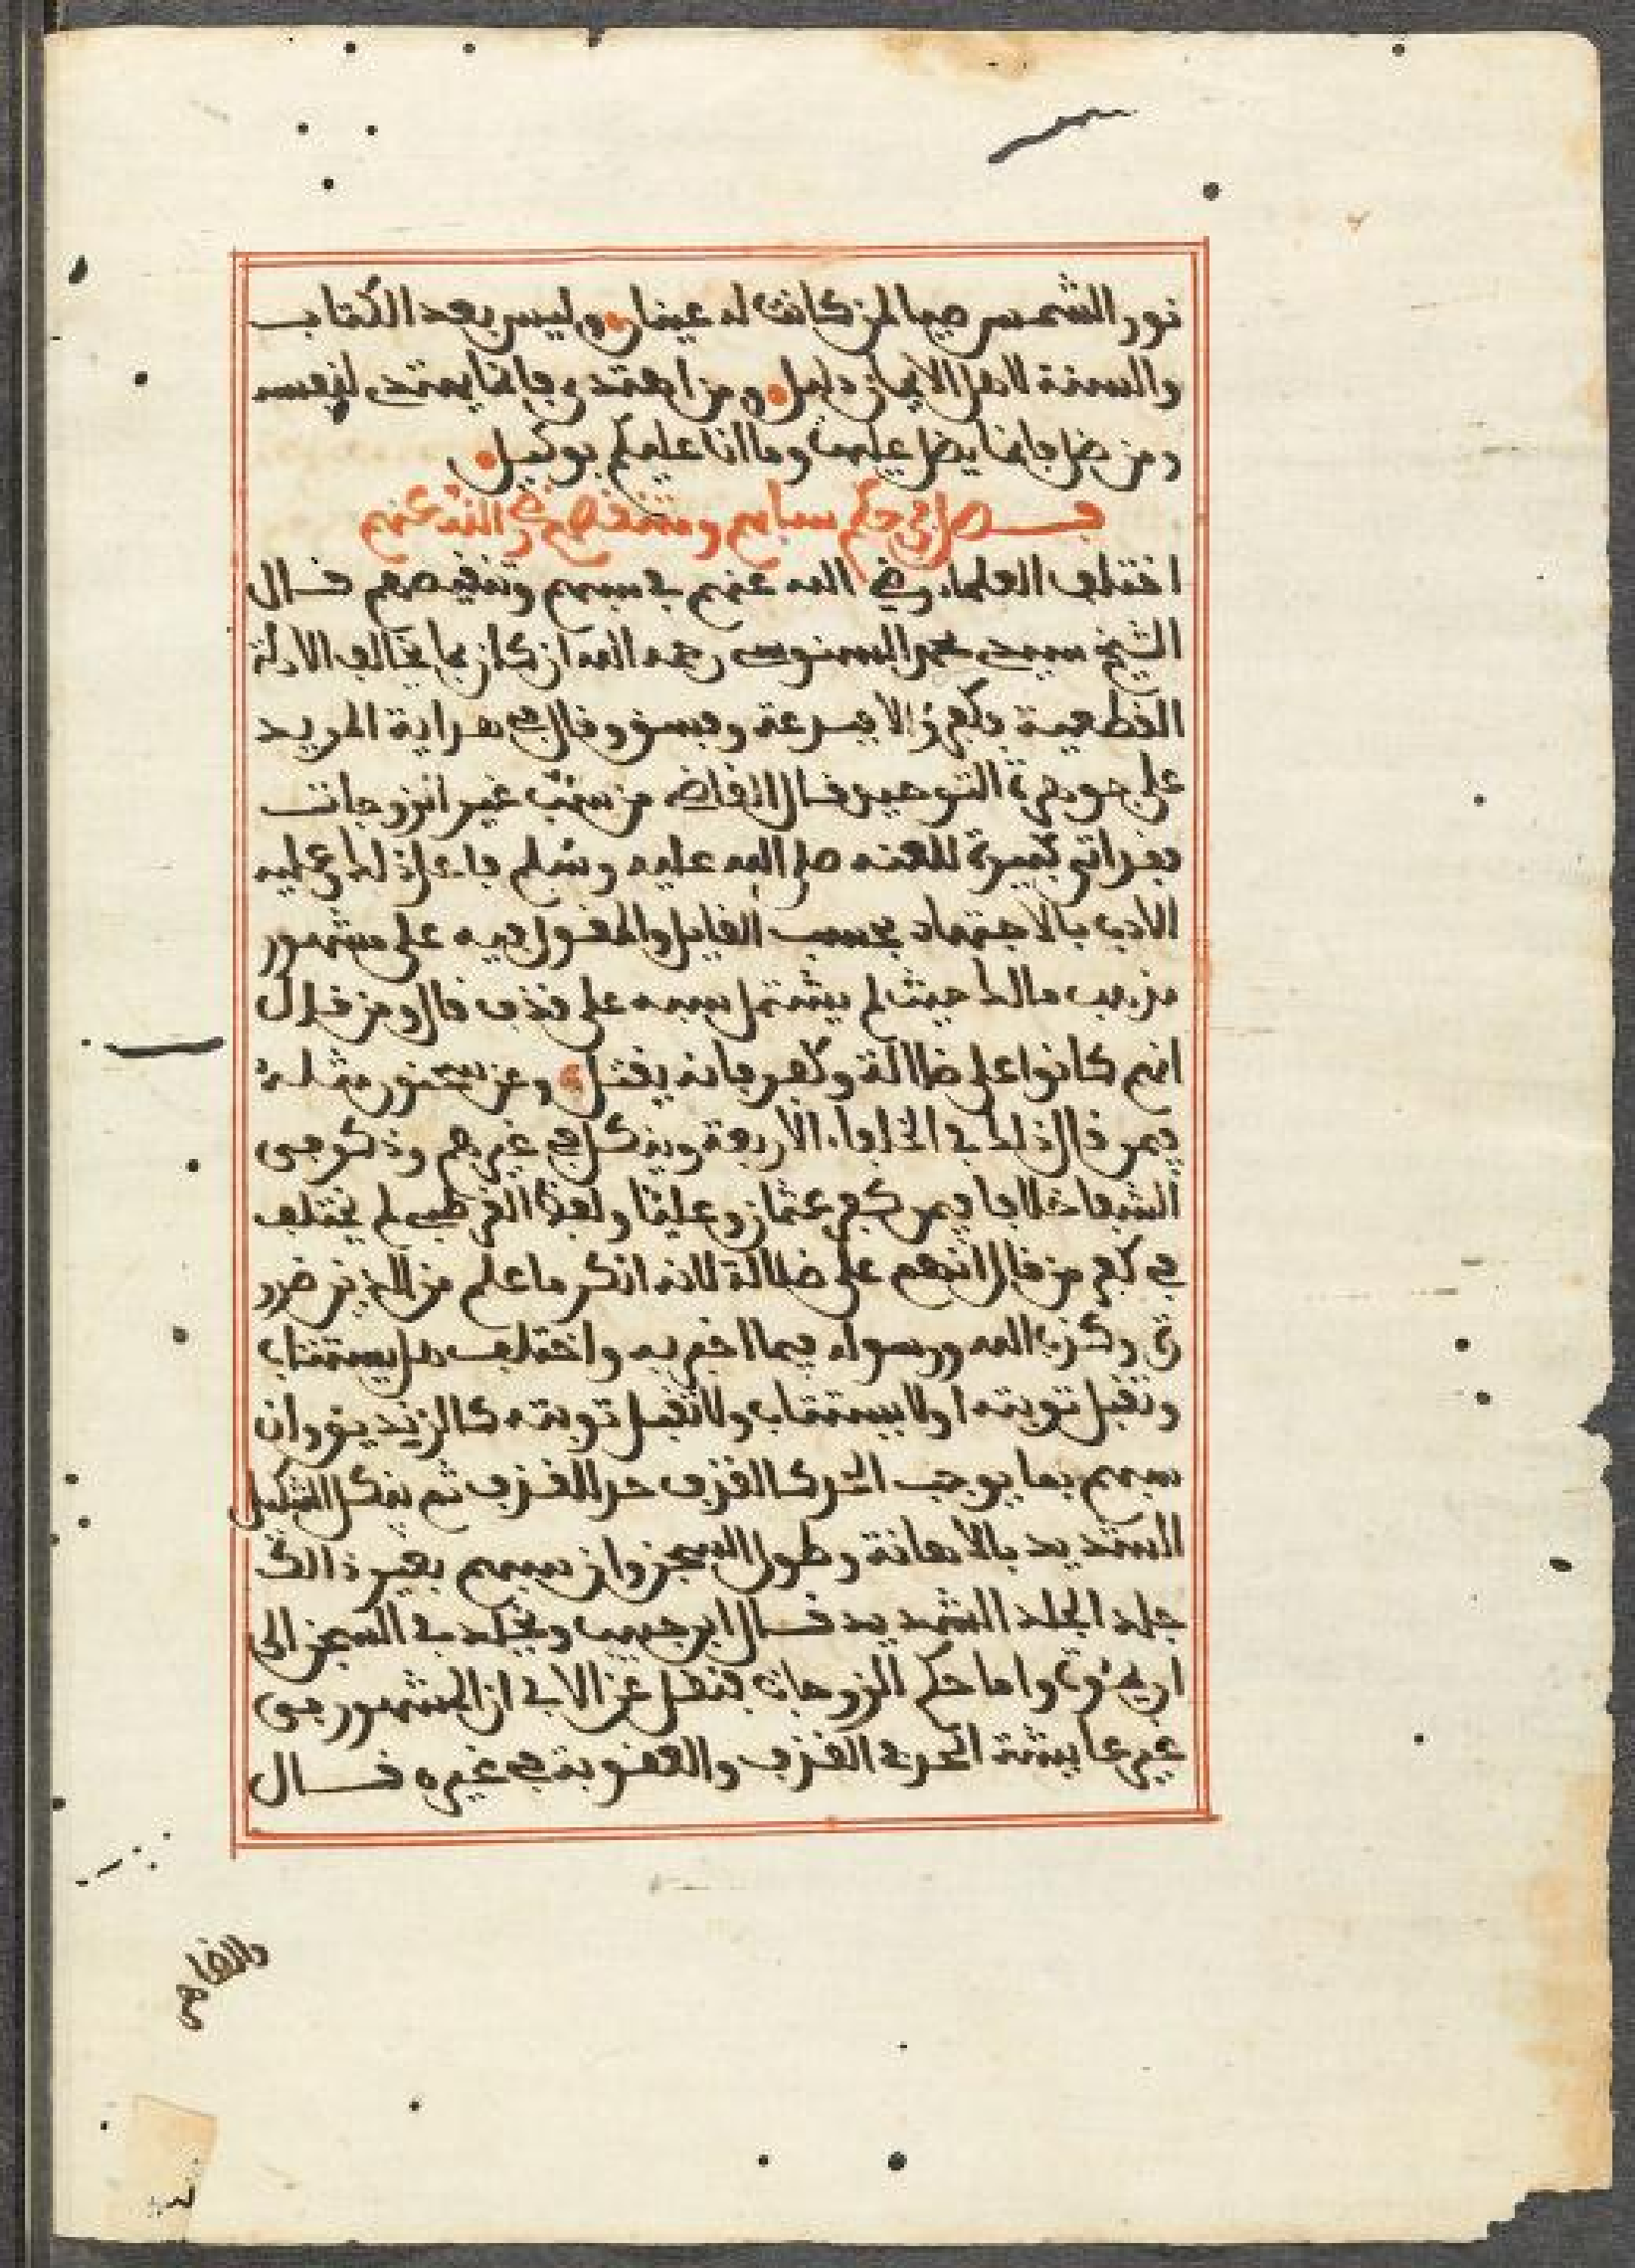 نور الشمس ضيا لمن كانت له عينان وليس بعد الكتاب
والسنة لاهل الايمان دليل ومن اهتدى فانما يهتدي لنفسه
ومن ضل فانما يضل عليها وما انا عليكم بوكيل
فصل في حكم سبابهم ومنتقصهم رضي الله عنهم
اختلف العلماء رضي الله عنهم في سبهم وتنقيصهم قال
الشيخ سيدي محمد السنوسي رحمه الله ان كان بما يخالف الادلة
القطعية فكفر والا فبدعة وفسق وقال في هداية المريد
على جوهرة التوحيد قال القاضي من سب غير الزوجات
فقد اتى كبيرة للعنه صلى الله عليه وسلم فاعل ذلك وعليه
الادب بالاجتهاد بحسب القايل والمقول فيه على مشهور
مذهب مالك حيث لم يشتمل سبه على قذف قال ومن قال
انهم كانوا على ضلالة وكفر فانه يقتل وعن سحنون مثله
فيمن قال ذلك في الخلفاء الاربعة وينكل في غيرهم وذكر في
الشفا خلافا فيمن كفر عثمان وعليا ولفظ القرطبي لم يختلف
في كفر من قال انهم على ضلالة لانه انكر ما علم من الدين ضرور
ة وكذب الله ورسوله فيما اخبر به واختلف هل يستتاب
وتقبل توبته او لا يستتاب ولا تقبل توبته كالزنديق وان
سبهم بما يوجب الحد كالقذف حد للقذف ثم ينكل التنكيل
الشديد بالاهانة وطول السجن وان سبهم بغير ذالك
جلد الجلد الشديد قال ابن حبيب ويخلد في السجن الى
ان يموت واما حكم الزوجات فنقل عن الابي ان المشهور في
غير عايشة الحد في القذف والعقوبة في غيره قال